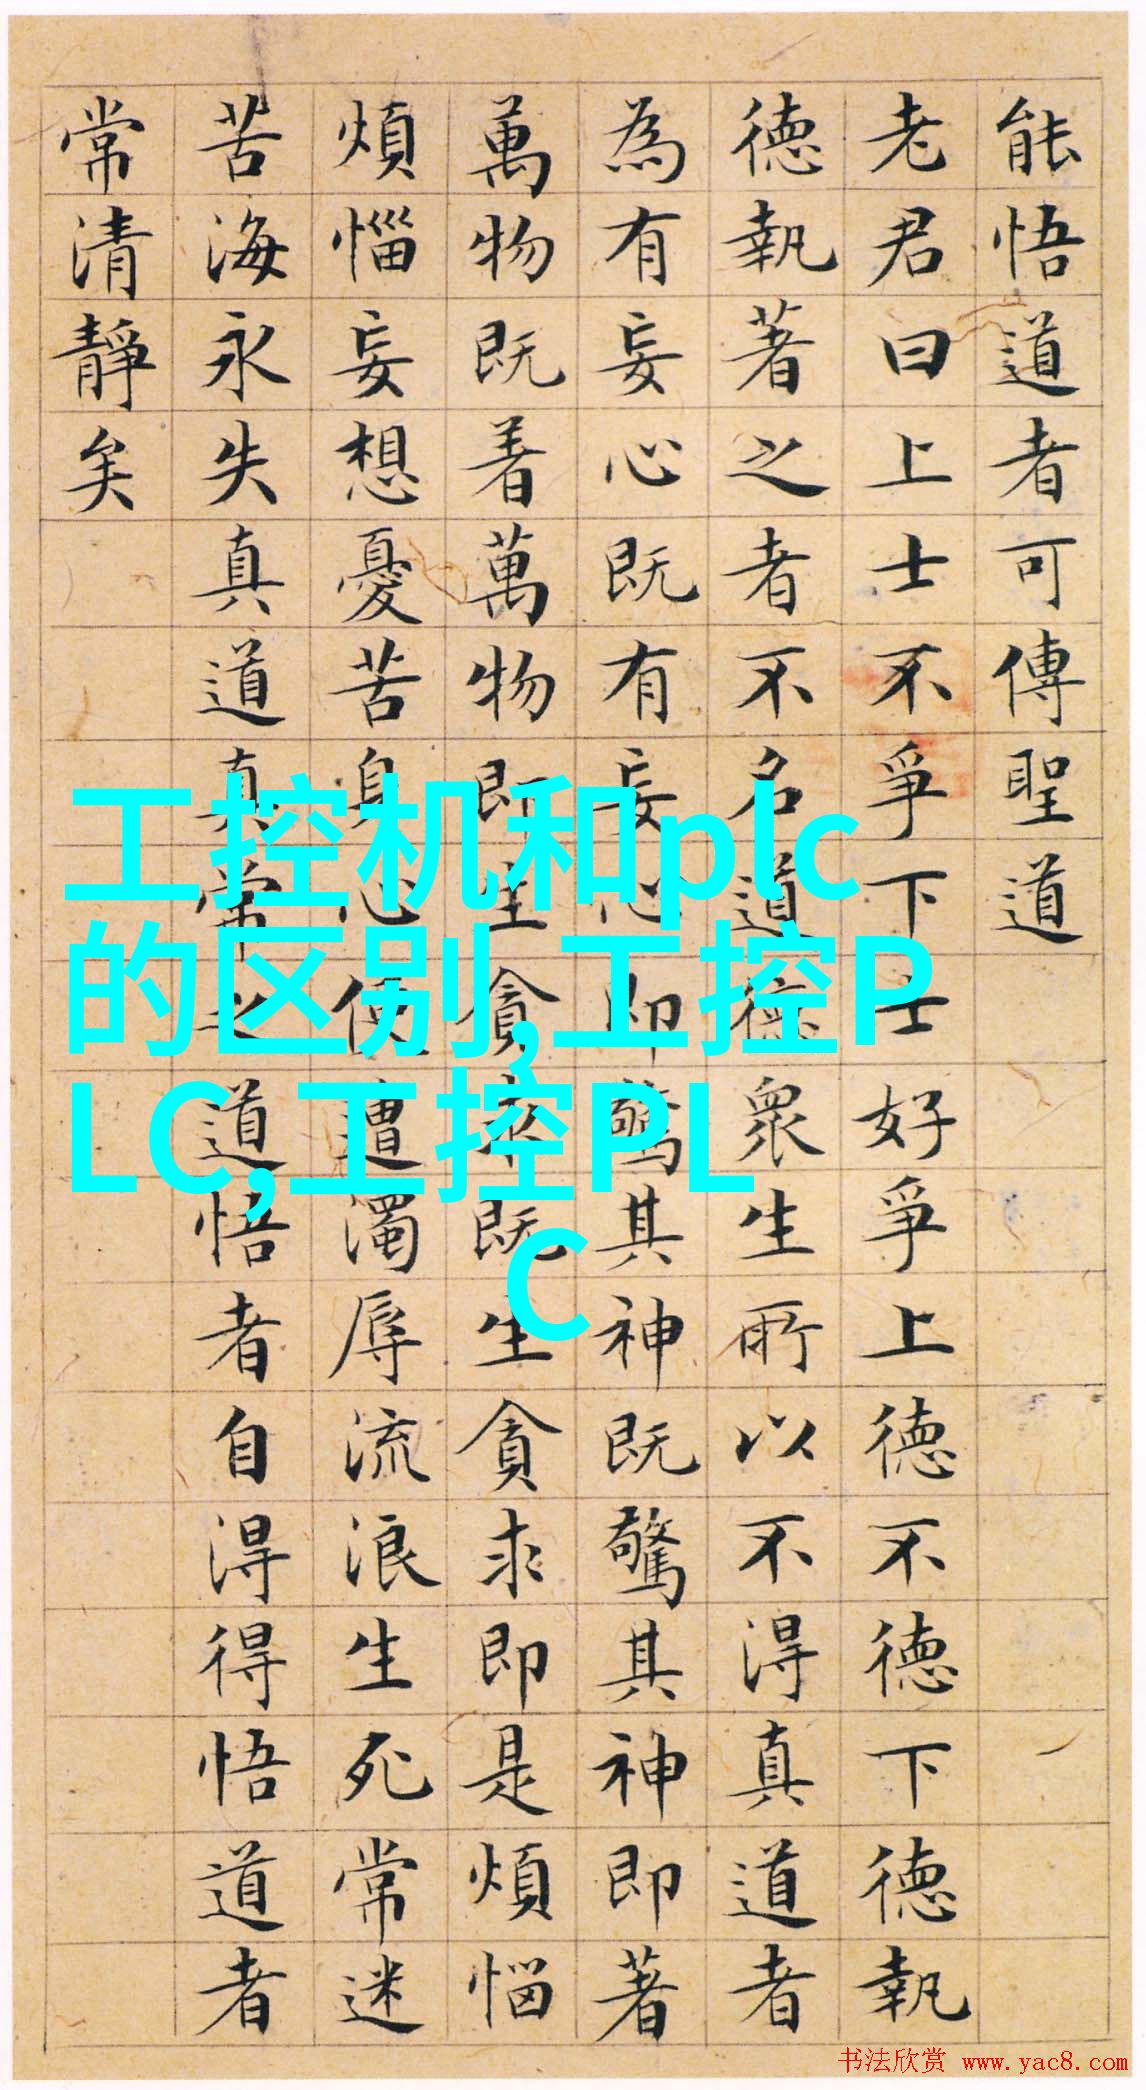 能悟道者可傳聖道
老君曰上士不爭下士好爭上德不德下德執
德執著之者不名道德眾生所以不得真道者
為有妄心既有妄心即驚其神既驚其神即著
萬物既着萬物即生貪求既生貪求即是煩惱
煩惱妄想憂苦身心便遭濁辱流浪生死常迷
苦海永失真道真常之道悟者自得得悟道者
常清靜矣
工控机和plc
的区别,工控P
LC,工控PL
C
书法欣赏 www.yac8.com